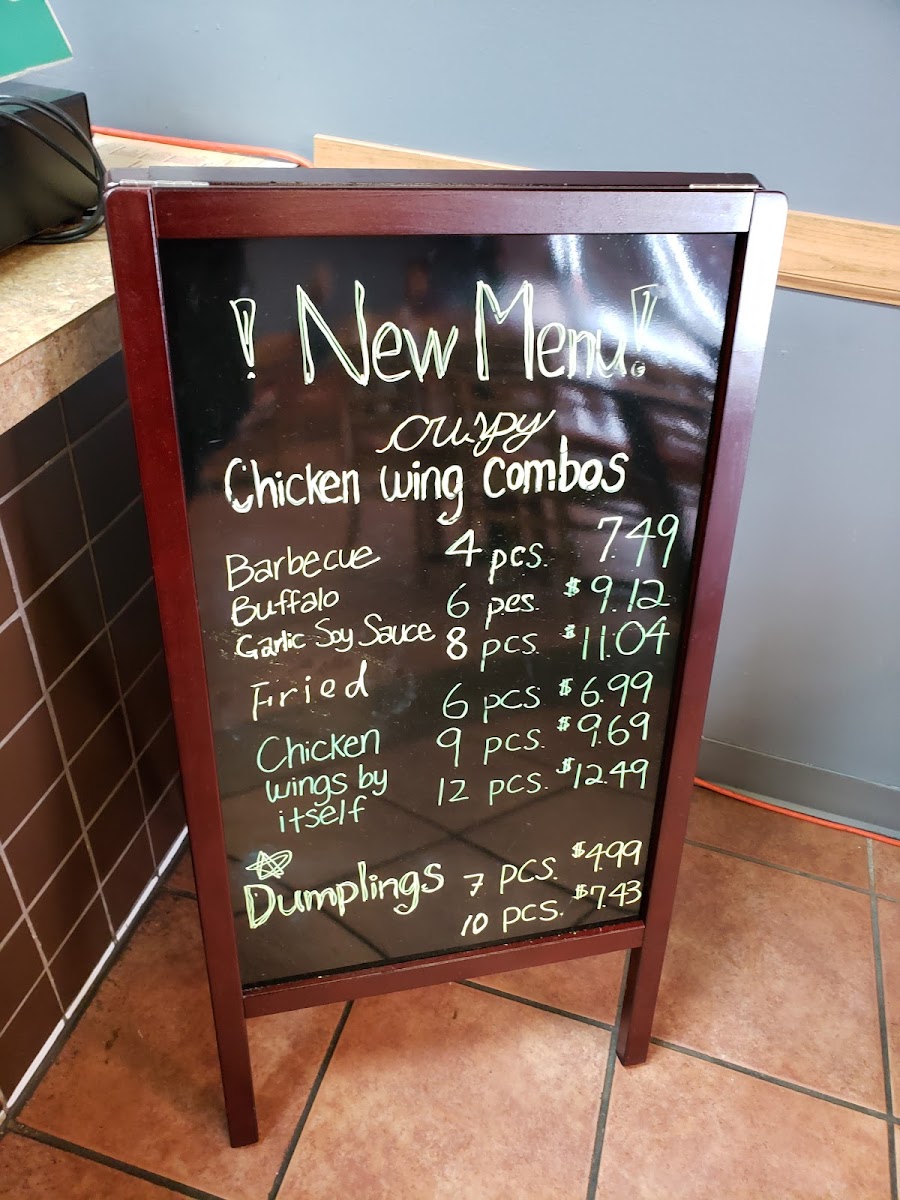 ! New Menu!
crispy
Chicken wing combos
Barbecue 4 pcs. 7.49
Buffalo 6 pcs. $9.12
Garlic Soy Sauce 8 pcs. $11.04
Fried
6 pcs $6.99
Chicken 9 pcs. $9.69
wings by 12 pcs. $12.49
itself
Dumplings 7 pcs. $4.99
10 pcs. $7.43